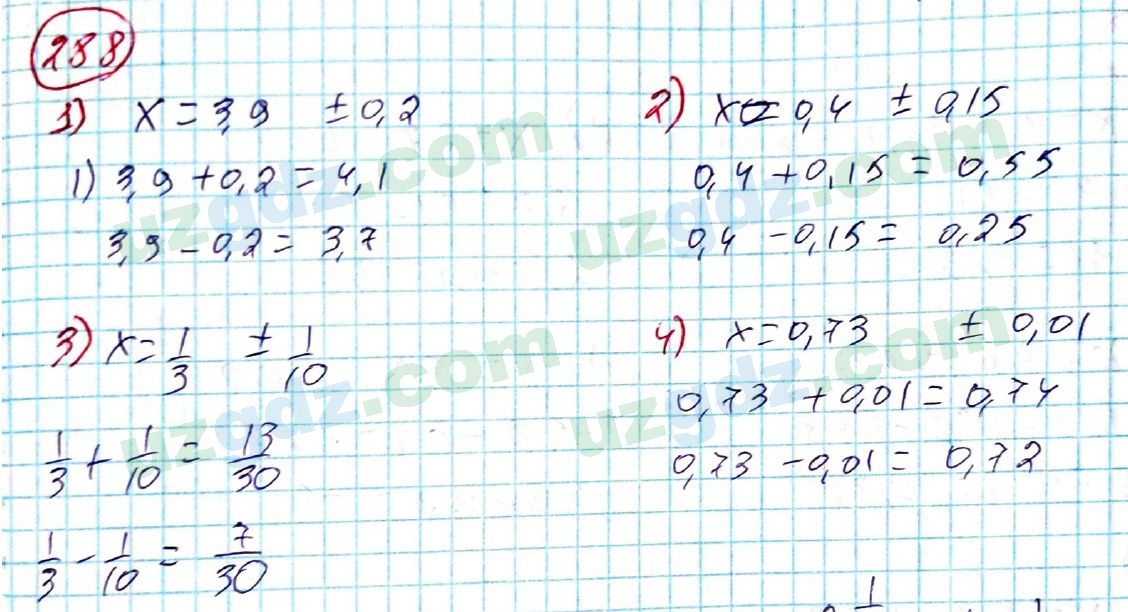 288
1) x = 3,9 ± 0,2
1) 3,9 + 0,2 = 4,1
3,9 - 0,2 = 3,7
2) x = 0,4 ± 0,15
0,4 + 0,15 = 0,55
0,4 - 0,15 = 0,25
3) x = 1/3 ± 1/10
1/3 + 1/10 = 13/30
1/3 - 1/10 = 7/30
4) x = 0,73 ± 0,01
0,73 + 0,01 = 0,74
0,73 - 0,01 = 0,72
uzgdz.com
uzgdz.com
uzgdz.com
uzgdz.com